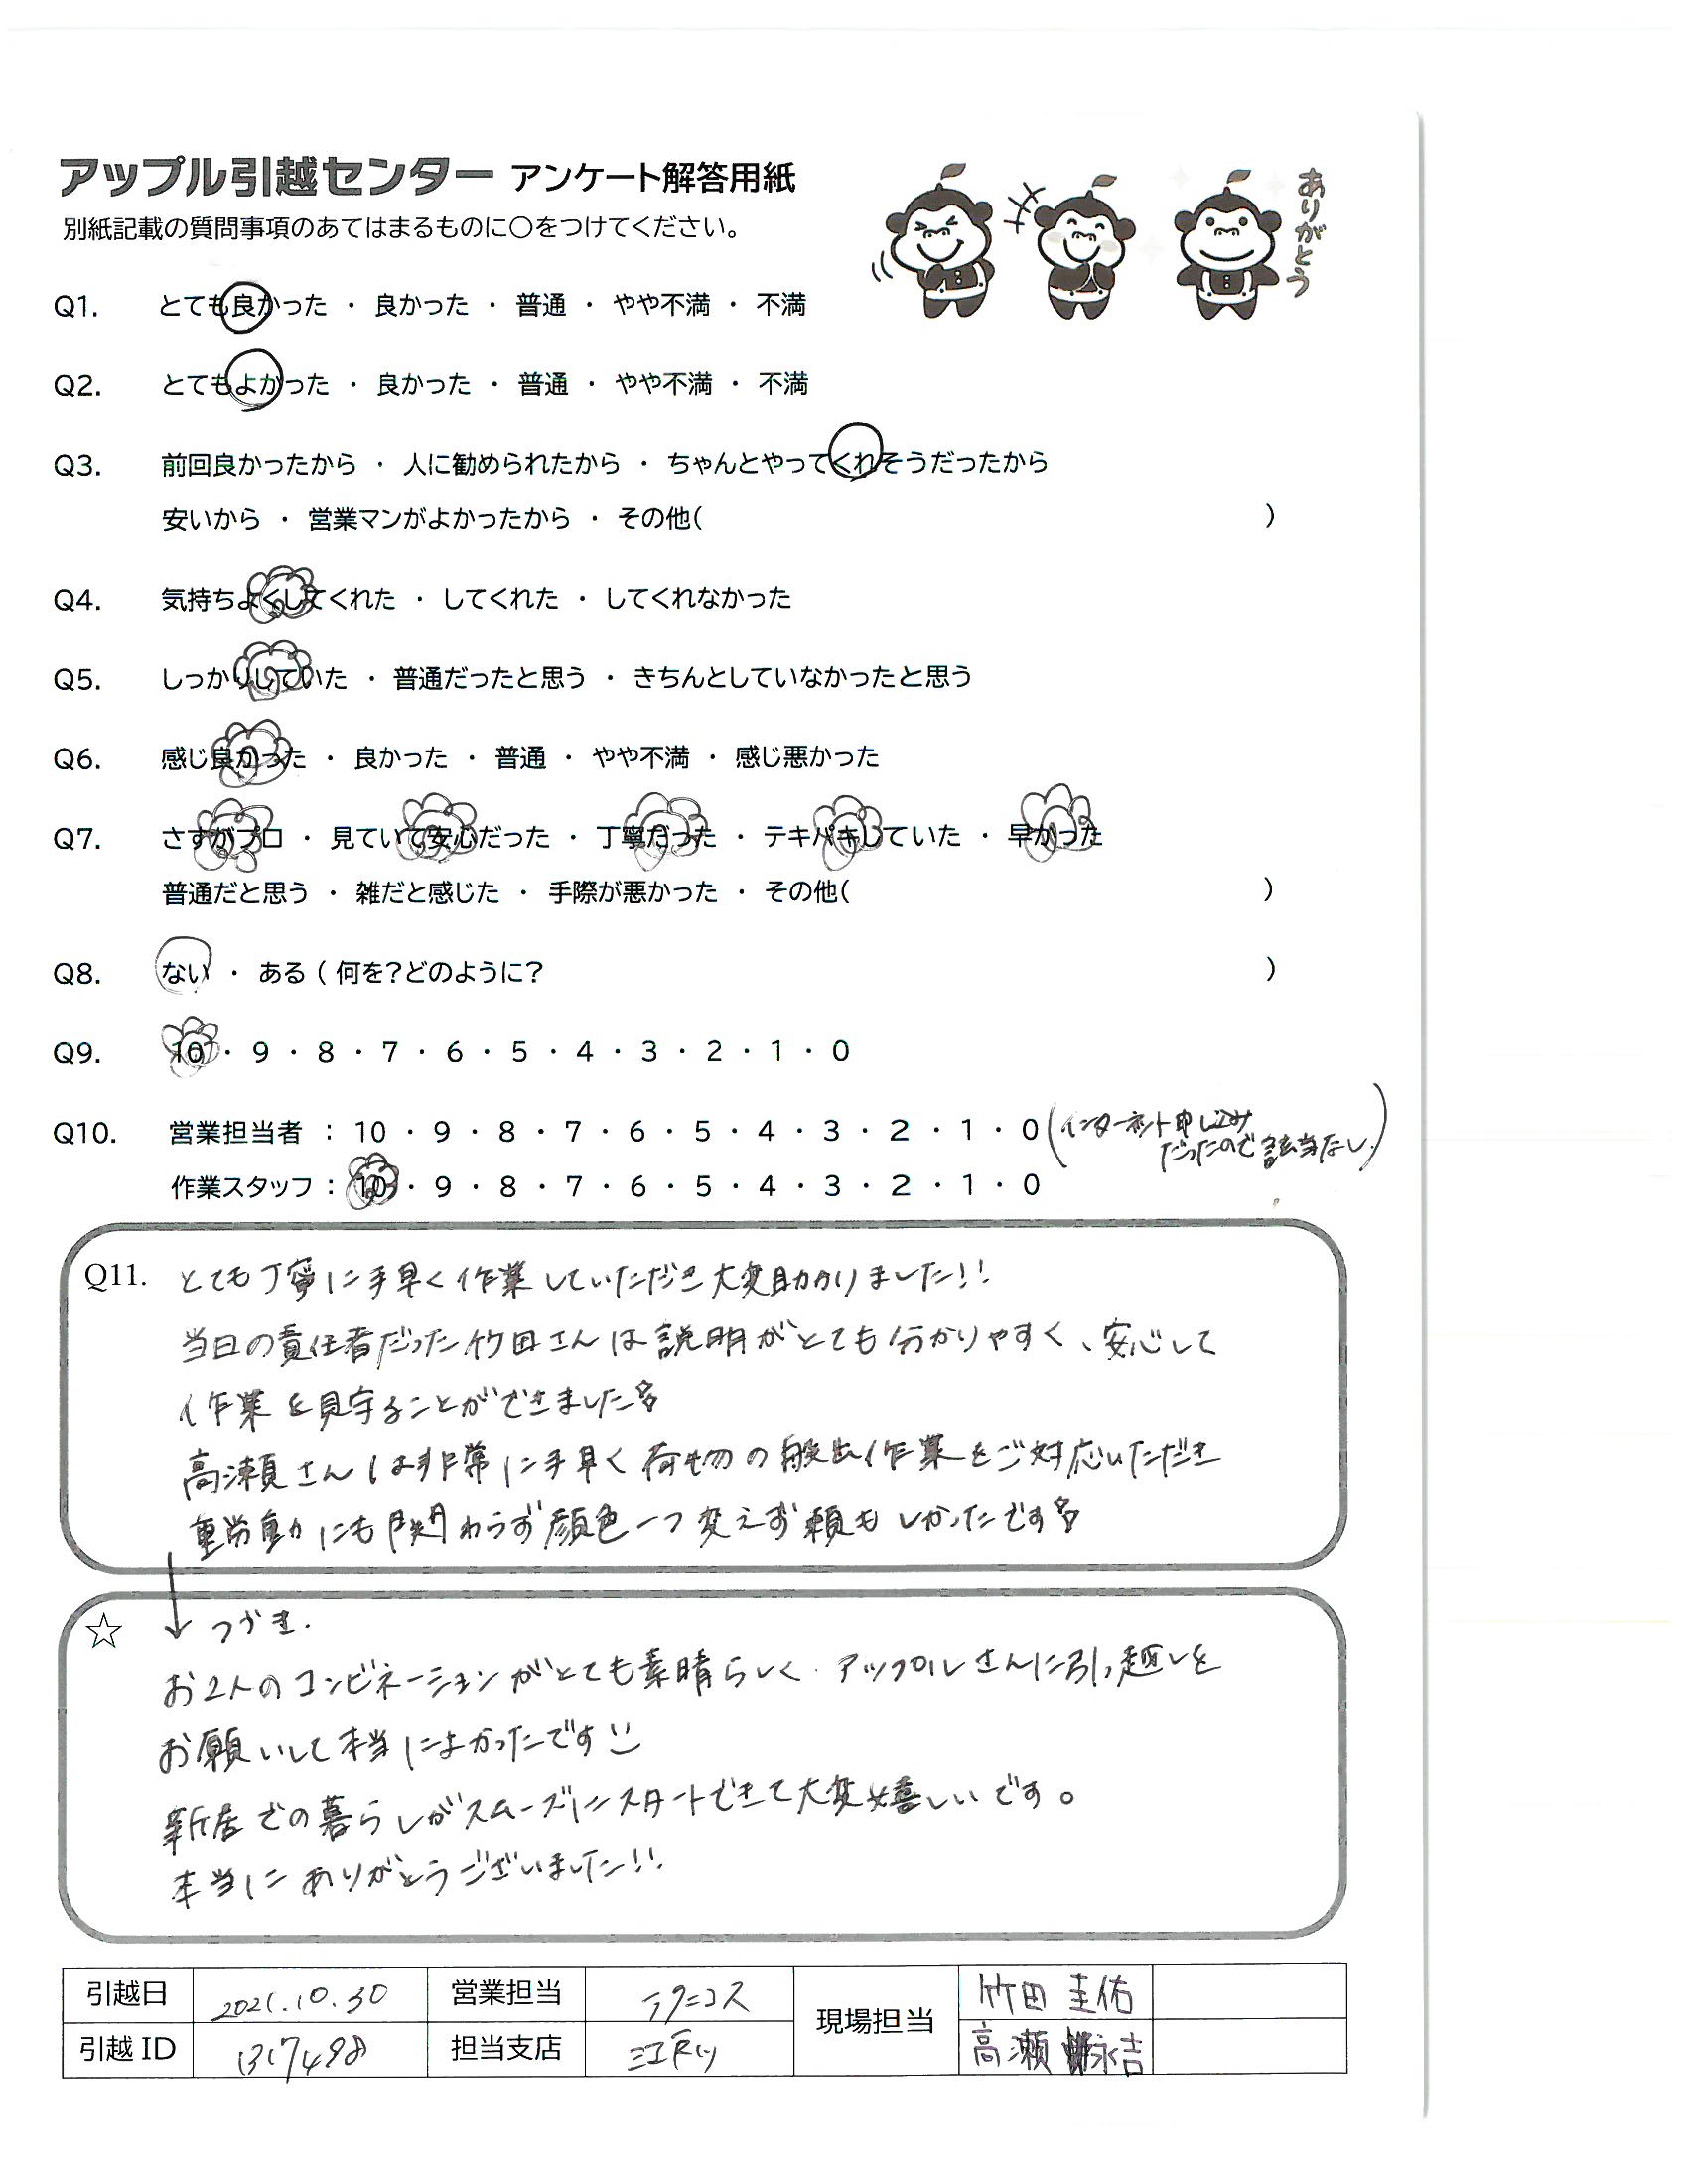 アップル引越センター アンケート解答用紙
ありがとう
別紙記載の質問事項のあてはまるものに〇をつけてください。
Q1. とても良かった ・ 良かった ・ 普通 ・ やや不満 ・ 不満
Q2. とてもよかった ・ 良かった ・ 普通 ・ やや不満 ・ 不満
Q3. 前回良かったから ・ 人に勧められたから ・ ちゃんとやってくれそうだったから
安いから ・ 営業マンがよかったから ・ その他( )
Q4. 気持ちよくしてくれた ・ してくれた ・ してくれなかった
Q5. しっかりしていた ・ 普通だったと思う ・ きちんとしていなかったと思う
Q6. 感じ良かった ・ 良かった ・ 普通 ・ やや不満 ・ 感じ悪かった
Q7. さすがプロ ・ 見ていて安心だった ・ 丁寧だった ・ テキパキしていた ・ 早かった
普通だと思う ・ 雑だと感じた ・ 手際が悪かった ・ その他( )
Q8. ない ・ ある ( 何を?どのように? )
Q9. 10 ・ 9 ・ 8 ・ 7 ・ 6 ・ 5 ・ 4 ・ 3 ・ 2 ・ 1 ・ 0
Q10. 営業担当者 : 10 ・ 9 ・ 8 ・ 7 ・ 6 ・ 5 ・ 4 ・ 3 ・ 2 ・ 1 ・ 0 (インターネット申し込み
だったので該当なし.)
作業スタッフ : 10 ・ 9 ・ 8 ・ 7 ・ 6 ・ 5 ・ 4 ・ 3 ・ 2 ・ 1 ・ 0
Q11. とても丁寧に手早く作業していただき大変助かりました!!
当日の責任者だった竹田さんは説明がとても分かりやすく、安心して
作業を見守ることができました
高瀬さんは非常に手早く荷物の搬出作業をご対応いただき
重労働にも関わらず顔色一つ変えず頼もしかったです
☆ ↓ つづき.
お2人のコンビネーションがとても素晴らしく、アップルさんに引っ越しを
お願いして本当によかったです
新居での暮らしがスムーズにスタートできて大変嬉しいです。
本当にありがとうございました!!
引越日 2021.10.30 営業担当 現場担当 竹田 圭佑
引越 ID 1317498 担当支店 江戸川 高瀬 永吉